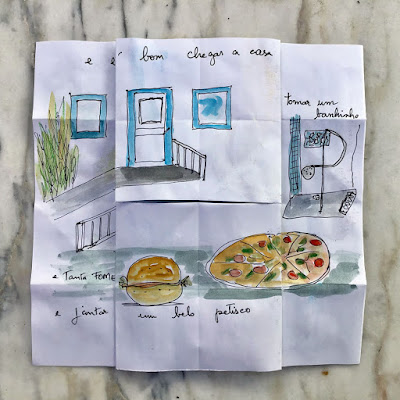 e é bom chegar a casa
tomar um
banhinho
e Tanta FOME
e jantar um belo petisco